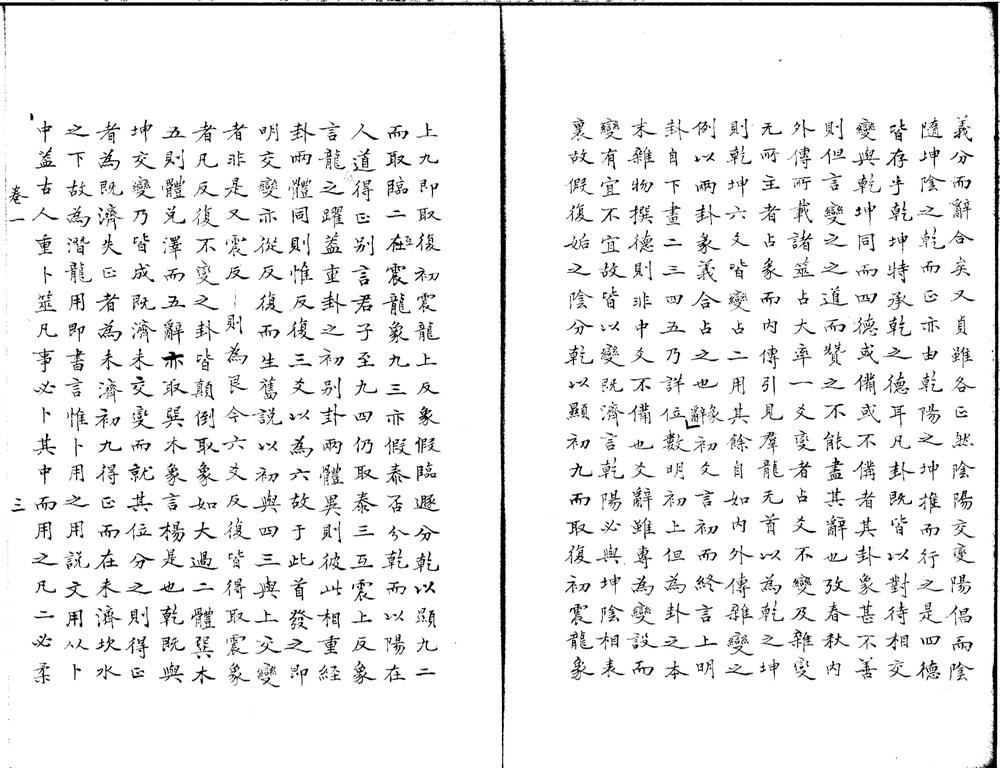 義分而辭合矣又貞雖各正然陰陽交變陽倡而陰
隨坤陰之乾而正亦由乾陽之坤推而行之是四德
皆存乎乾坤特承乾之德耳凡卦既皆以對待相交
變與乾坤同而四德或備或不備者其卦象甚不善
則但言變之之道而贊之不能盡其辭也攷春秋内
外傳所載諸筮占大率一爻變者占爻不變及雜變
无所主者占象而内傳引見羣龍无首以為乾之坤
則乾坤六爻皆變占二用其餘自如内外傳雜變之
例以兩卦象義合占之也象辭初爻言初而終言上明
卦自下畫二三四五乃詳位數明初上但為卦之本
末雜物撰德則非中爻不備也爻辭雖專為變設而
變有宜不宜故皆以變既濟言乾陽必與坤陰相表
裏故假復姤之陰分乾以顯初九而取復初震龍象
上九即取復初震龍上反象假臨遯分乾以顯九二
而取臨二在互震龍象九三亦假泰否分乾而以陽在
人道得正别言君子至九四仍取泰三互震上反象
言龍之躍蓋重卦之初别卦兩體異則彼此相重經
卦兩體同則惟反復三爻以為六故于此首發之即
明交變亦從反復而生舊說以初與四三與上交變
者非是又震反則為艮今六爻反復皆得取震象
者凡反復不變之卦皆顛倒取象如大過二體巽木
五則體兌澤而五辭亦取巽木象言楊是也乾既與
坤交變乃皆成既濟未交變而就其位分之則得正
者為既濟失正者為未濟初九得正而在未濟坎水
之下故為潛龍用即書言惟卜用之用說文用从卜
中蓋古人重卜筮凡事必卜其中而用之凡二必柔
卷一
三